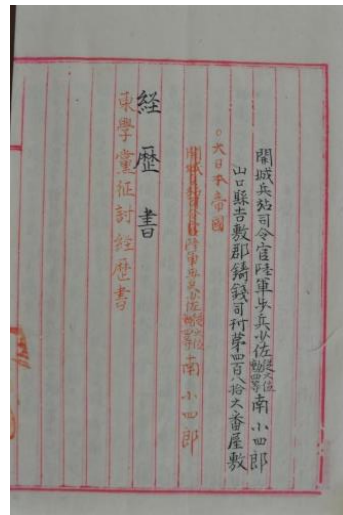 開城兵站司令官陸軍歩兵少佐従六位勲四等南小四郎
山口縣吉敷郡鑄錢司村第四百八拾六番屋敷
○大日本帝國
開城兵站司令官陸軍歩兵少佐従六位勲四等南小四郎
経歴書
東學黨征討経歴書